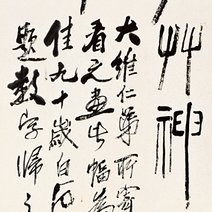 艸神
大維仁弟所寄
看之畫此幅為
佳九十歲白石
題數字歸之